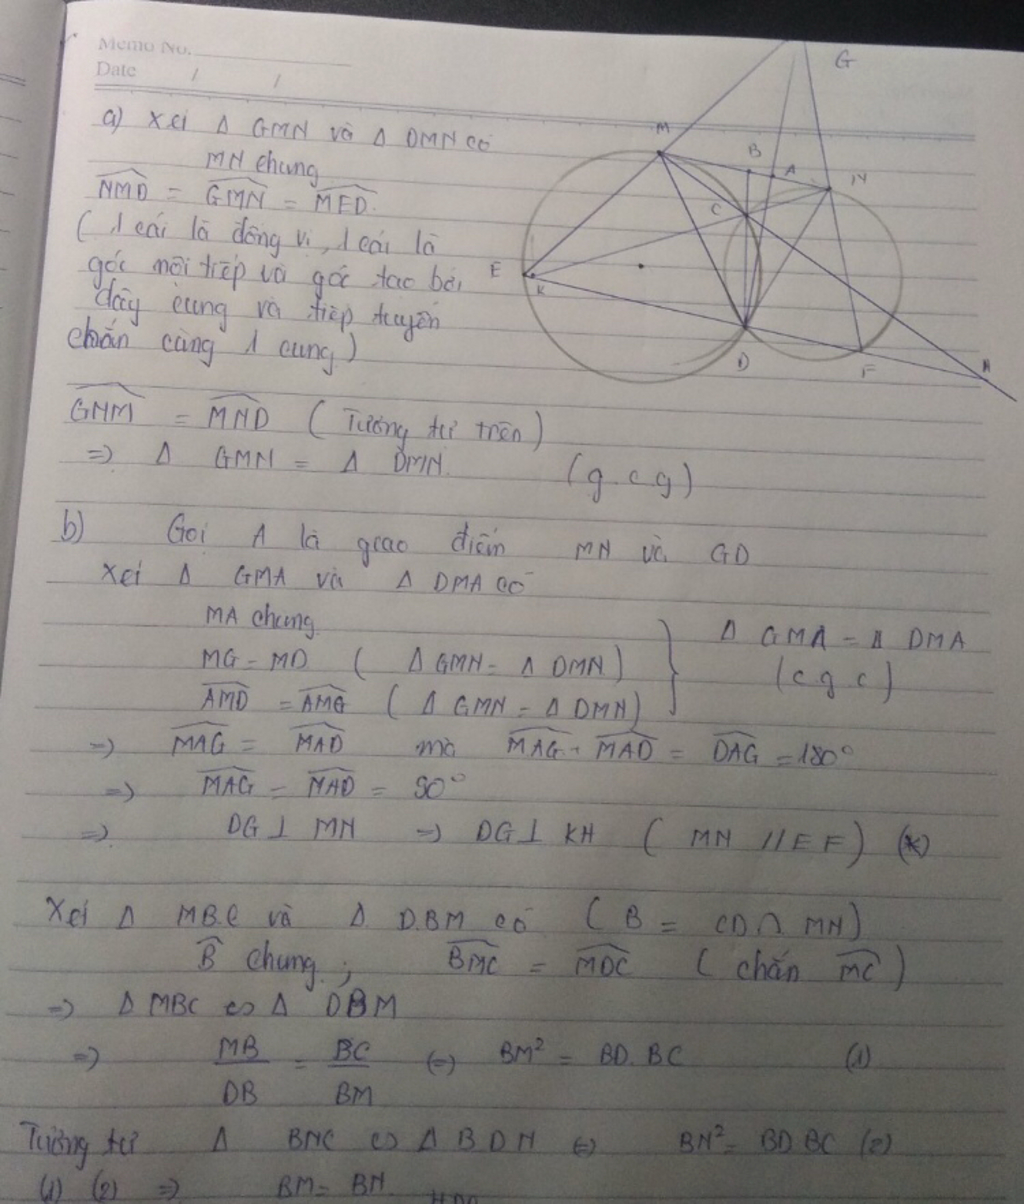 Memo No.
Date / /
a) Xét Δ GMN và Δ DMN có
MN chung
NMD = GMN = MED.
( 1 cái là đồng vị, 1 cái là
góc nội tiếp và góc tạo bởi
dây cung và tiếp tuyến
chắn cùng 1 cung )
GNM = MND ( Tương tự trên )
=> Δ GMN = Δ DMN. ( g.c.g )
b) Gọi A là giao điểm MN và GD
Xét Δ GMA và Δ DMA có
MA chung
MG = MD ( Δ GMN = Δ DMN )
AMD = AMG ( Δ GMN = Δ DMN )
} Δ GMA = Δ DMA
( c g c )
=> MAG = MAD mà MAG + MAD = DAG = 180°
=> MAG = MAD = 90°
=> DG ⊥ MN => DG ⊥ KH ( MN // EF ) (*)
Xét Δ MBC và Δ DBM có ( B = CD ∩ MN )
B chung ; BMC = MDC ( chắn MC )
=> Δ MBC ∽ Δ DBM
=> MB/DB = BC/BM (=) BM² = BD.BC (1)
Tương tự Δ BNC ∽ Δ BDN <=> BN² = BD BC (2)
(1) (2) => BM = BN
G
M
B
A
N
C
E
K
D
F
H